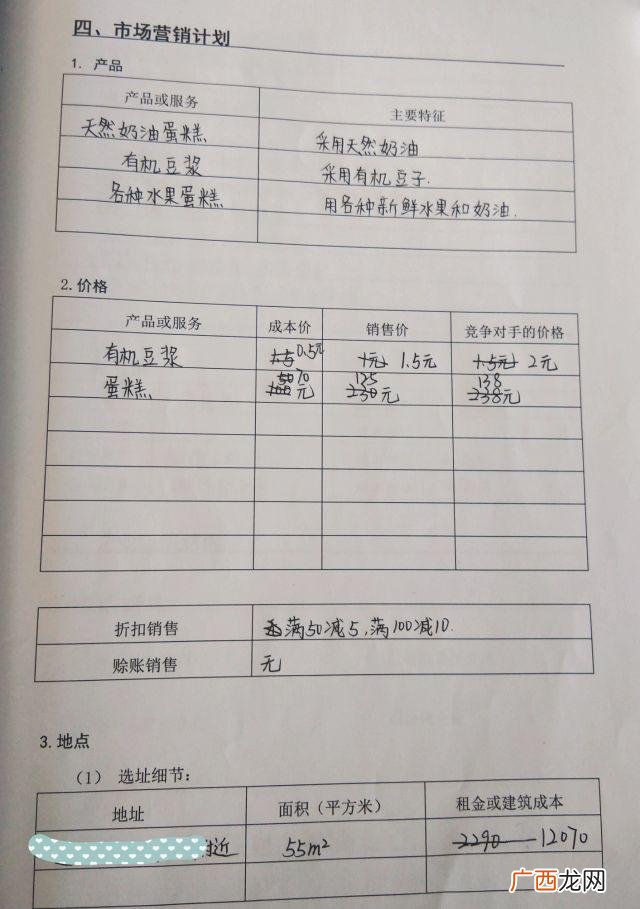 四、市场营销计划
1. 产品
产品或服务 主要特征
天然奶油蛋糕 采用天然奶油
有机豆浆 采用有机豆子.
各种水果蛋糕 用各种新鲜水果和奶油.
2.价格
产品或服务 成本价 销售价 竞争对手的价格
有机豆浆 1.5 0.5元 1元 1.5元 1.5元 2元
蛋糕 50 70 100元 135 230元 138 238元
折扣销售 满50减5,满100减10.
赊账销售 无
3.地点
(1) 选址细节:
地址 面积(平方米) 租金或建筑成本
附近 55m² 2290 12070
广西龙网